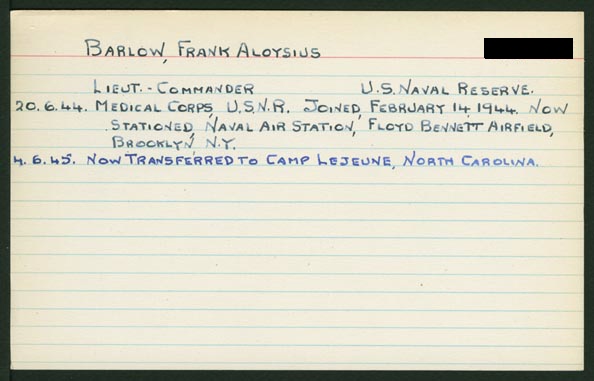 BARLOW, FRANK ALOYSIUS
LIEUT. - COMMANDER U.S. NAVAL RESERVE.
20.6.44. MEDICAL CORPS, U.S.N.R. JOINED, FEBRUARY 14, 1944. NOW
STATIONED, NAVAL AIR STATION, FLOYD BENNETT AIRFIELD,
BROOKLYN, N.Y.
4.6.45. NOW TRANSFERRED TO CAMP LEJEUNE, NORTH CAROLINA.